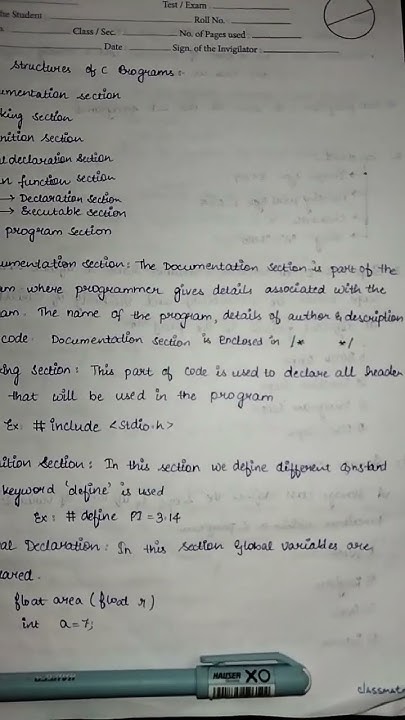 Test / Exam
he Student
Roll No.
Class / Sec.
No. of Pages used
Date
Sign. of the Invigilator
Structures of C Programs:-
umentation section
king section
nition section
l declaration section
n function section
→ Declaration section
→ Executable section
program section
umentation section: The Documentation section is part of the
am where programmer gives details associated with the
am. The name of the program, details of author & description
code. Documentation section is Enclosed in /* */
ing section: This part of code is used to declare all header
that will be used in the program
Ex: # include <stdio.h>
ition section: In this section we define different constant
keyword 'define' is used
Ex: # define PI = 3.14
al Declaration: In this section Global variables are
ared.
float area (float r)
int a=7;
HAUSER XO
classmate